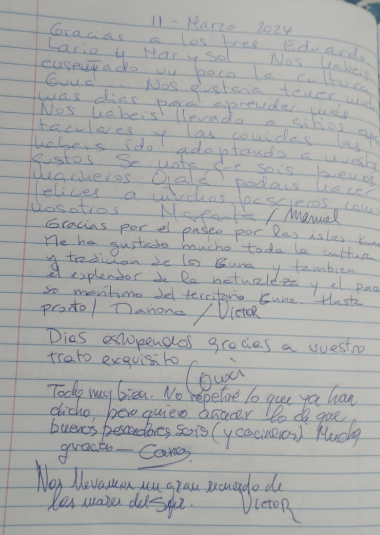 11 - Marzo 2024
Gracias a los tres Eduardo,
Lacio y Marysol Nos habeis
enseñado un poco la cultura
Guna. Nos gustaria tener
mas dias para aprender más
Nos habeis llevado a sitios
taculares y las comidas las
habeis ido adaptando a
gustos Se nota que sois buenos
marineros Ojala podais hacer
felices a muchos pasajeros como
nosotros / Manuel
Gracias por el paseo por las islas
Me ha gustado mucho toda la cultura
y tradicion de los Guna y tambien
el esplendor de la naturaleza y el
so marítimo del territorio Guna. Hasta
pronto! / Victor
Dias estupendos gracias a vuestro
trato exquisito
Todo muy bien. No repetiré lo que ya han
dicho, pero quiero añadir lo de que
buenos pescadores sois (y cocineros) Muchas
gracias —
Nos llevamos un gran recuerdo de
los mares del Sur. Victor